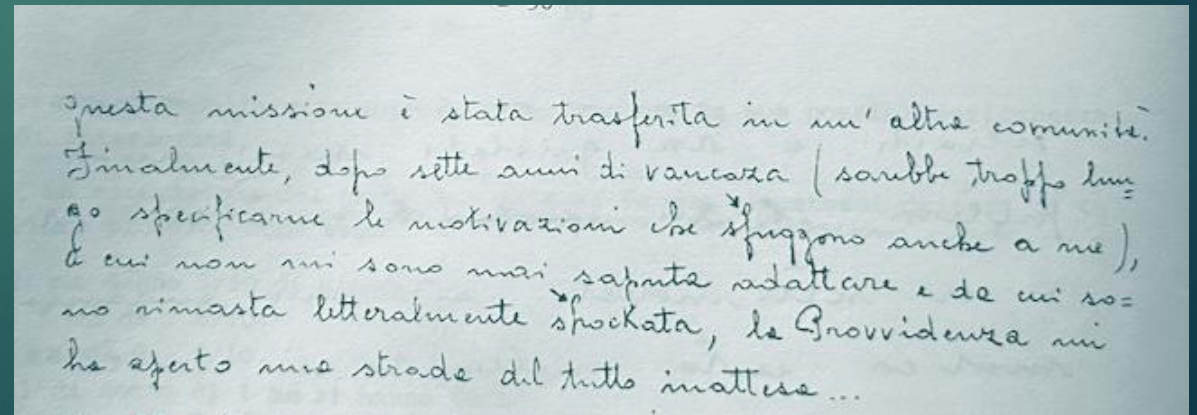 questa missione è stata trasferita in un' altra comunità.
Finalmente, dopo sette anni di vancaza (sarebbe troppo lun=
go specificarne le motivazioni che sfuggono anche a me),
a cui non mi sono mai saputa adattare e da cui so=
no rimasta letteralmente shockata, la Provvidenza mi
ha aperto una strada del tutto inattesa...